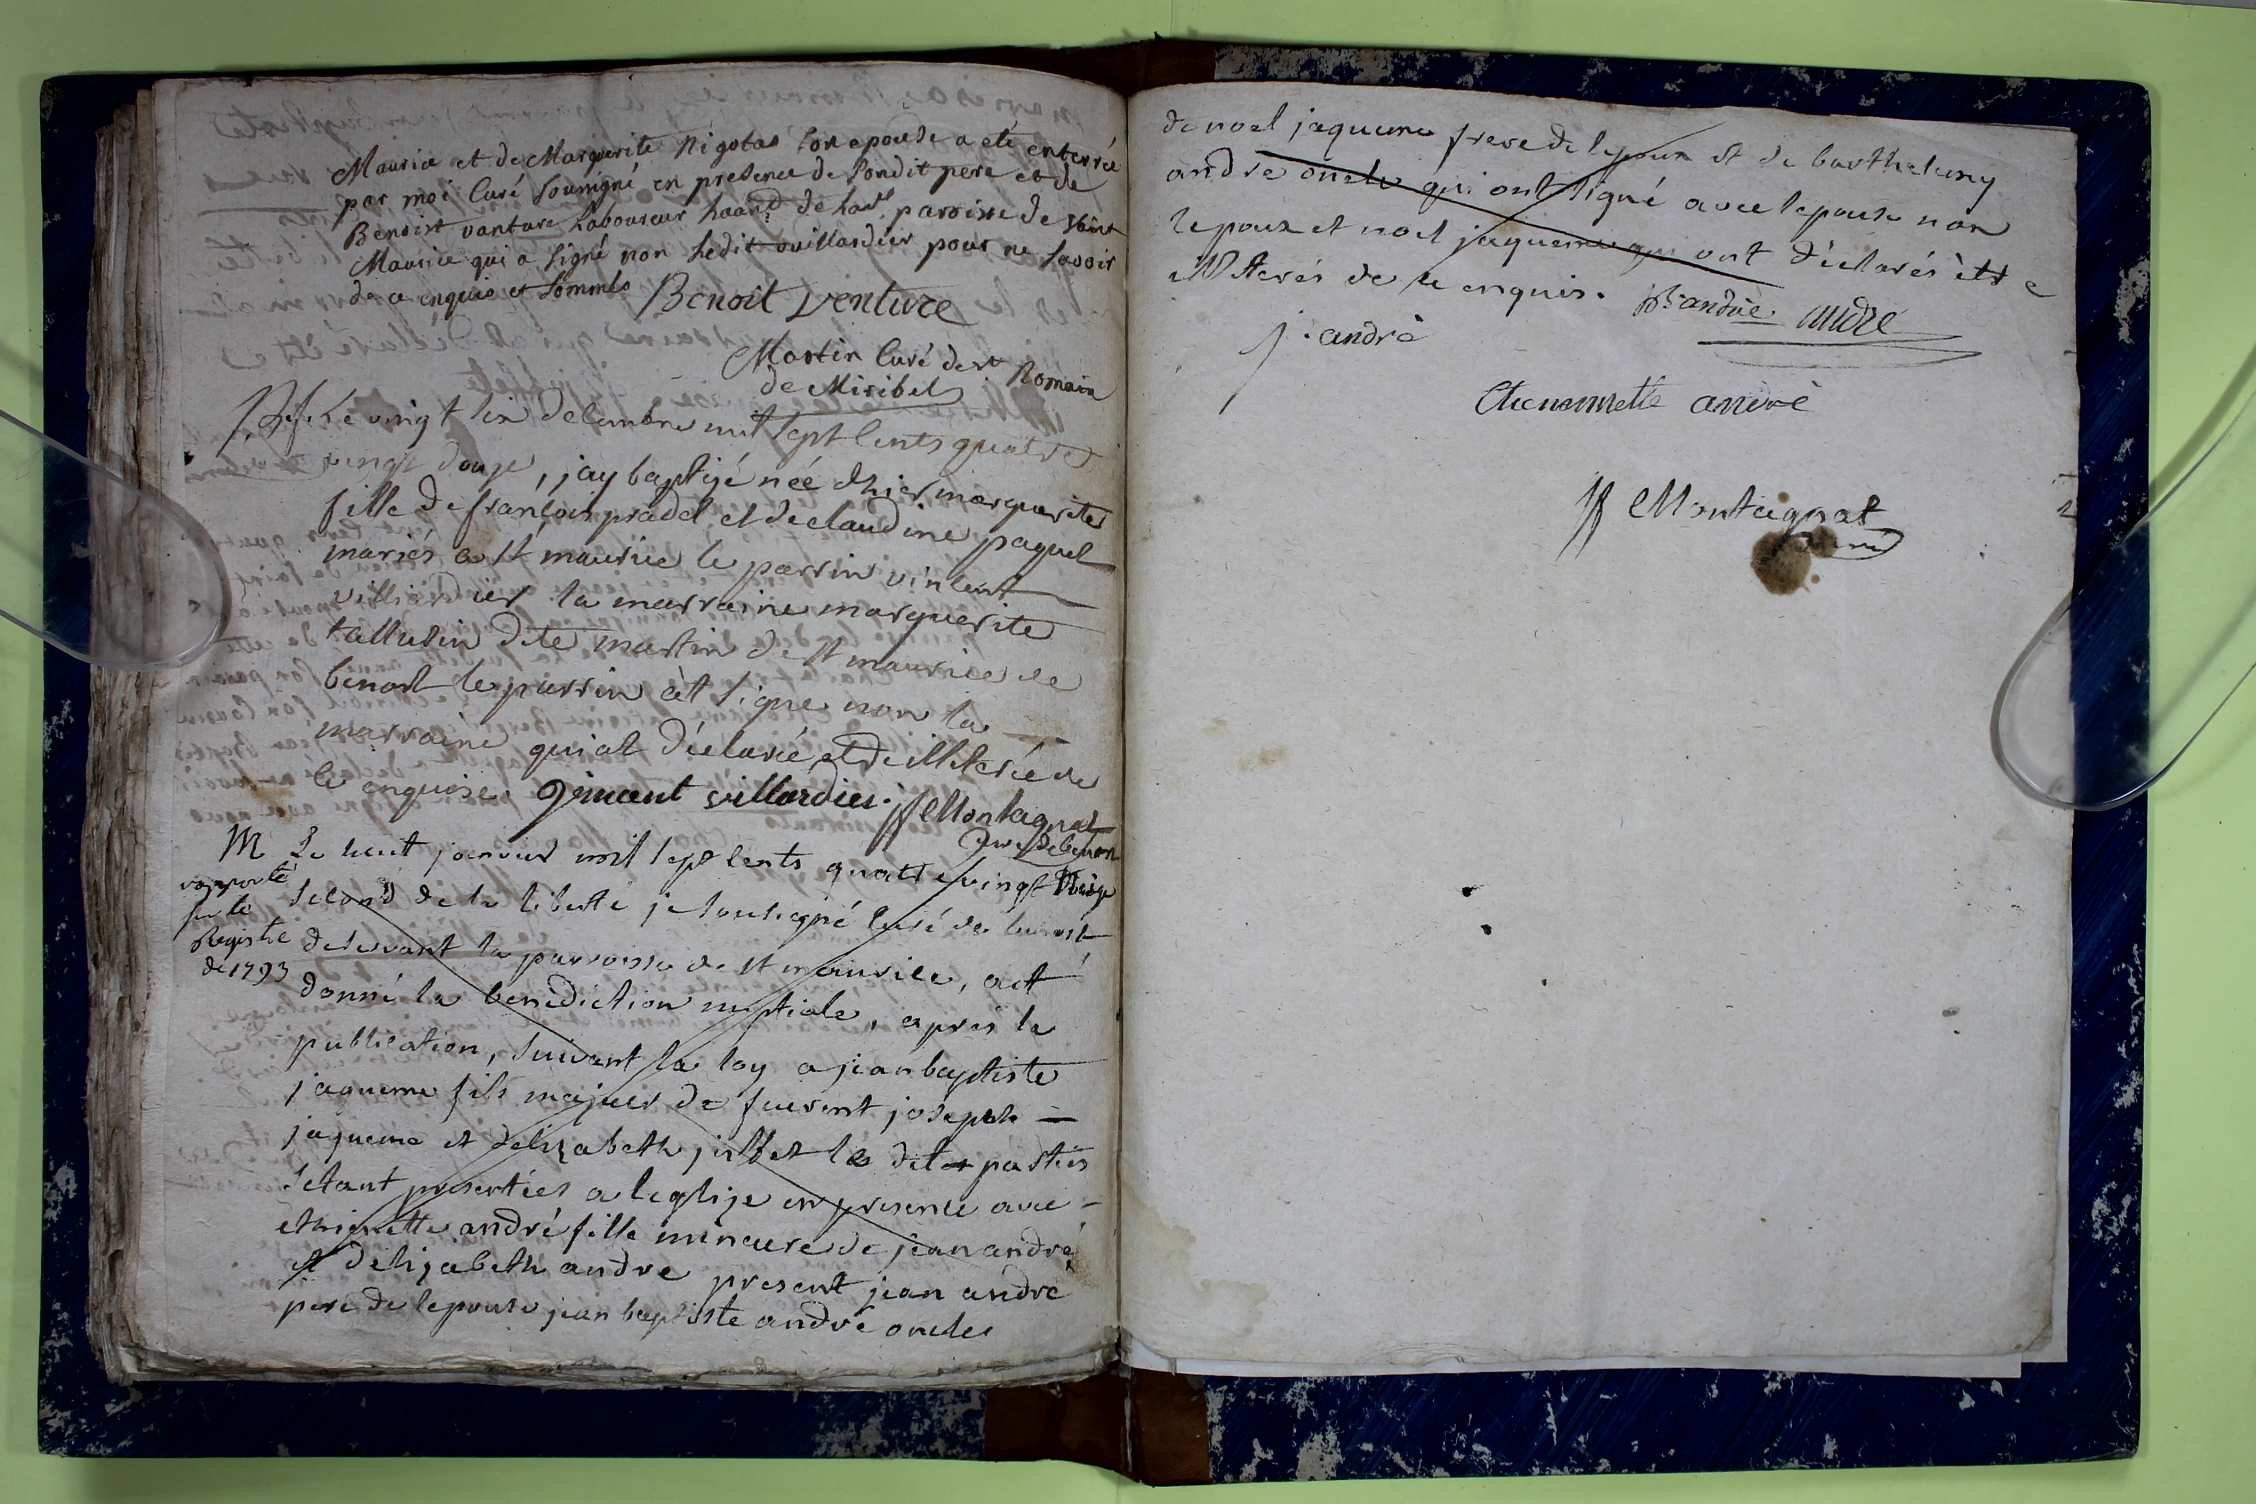 Maurice et de Marguerite Nigotas son epouse a eté enterrée
par moi Curé Soussigné en presence de Sondit pere et de
Benoist vanture Laboureur haand de haut paroisse de Saint
Maurice qui a Signé non ledit ouillardier pour ne Savoir
de ce enquis et Sommés
Benoit venture
Martin Curé de st Romain
de Miribel
Le vingt six decembre mil sept cents quatre
vingt douze, jay baptizé néé dhier marguerite
fille de françois pradel et de claudine paquel
mariés a st maurice le parrin vincent
villiardier la marraine marguerite
tallusin dite martin de st maurice de
benost le parrin at signe non la
marraine qui at déclarée et de illiterée de
ce enquise. Vincent villardier. Montagnat
Curé de benost
M Le huit janvier mil sept cents quatre vingt treize
rapporté
sur le
Registre
de 1793
second de la liberté je soussigné curé de benost
deservant la parroisse de st maurice, ait
donné la benediction nuptiale, après la
publication, suivant la loy a jean baptiste
jaqueme fils majeur de feu vent joseph
jaqueme et delizabeth jullet les dites parties
setant presentées a leglize en presence avec
ethiennette andré fille mineure de jean andré
et delizabeth andre present jean andre
pere de lepouse jean baptiste andré oncles
de noel jaqueme frere de lepoux et de barthelemy
andre oncle qui ont signé avec lepouse non
lepoux et noel jaqueme qui ont déclarés ètre
illiterés de ce enquis. Bte andrie andré
j. andré
Etienmette andré
Montagnat
curé